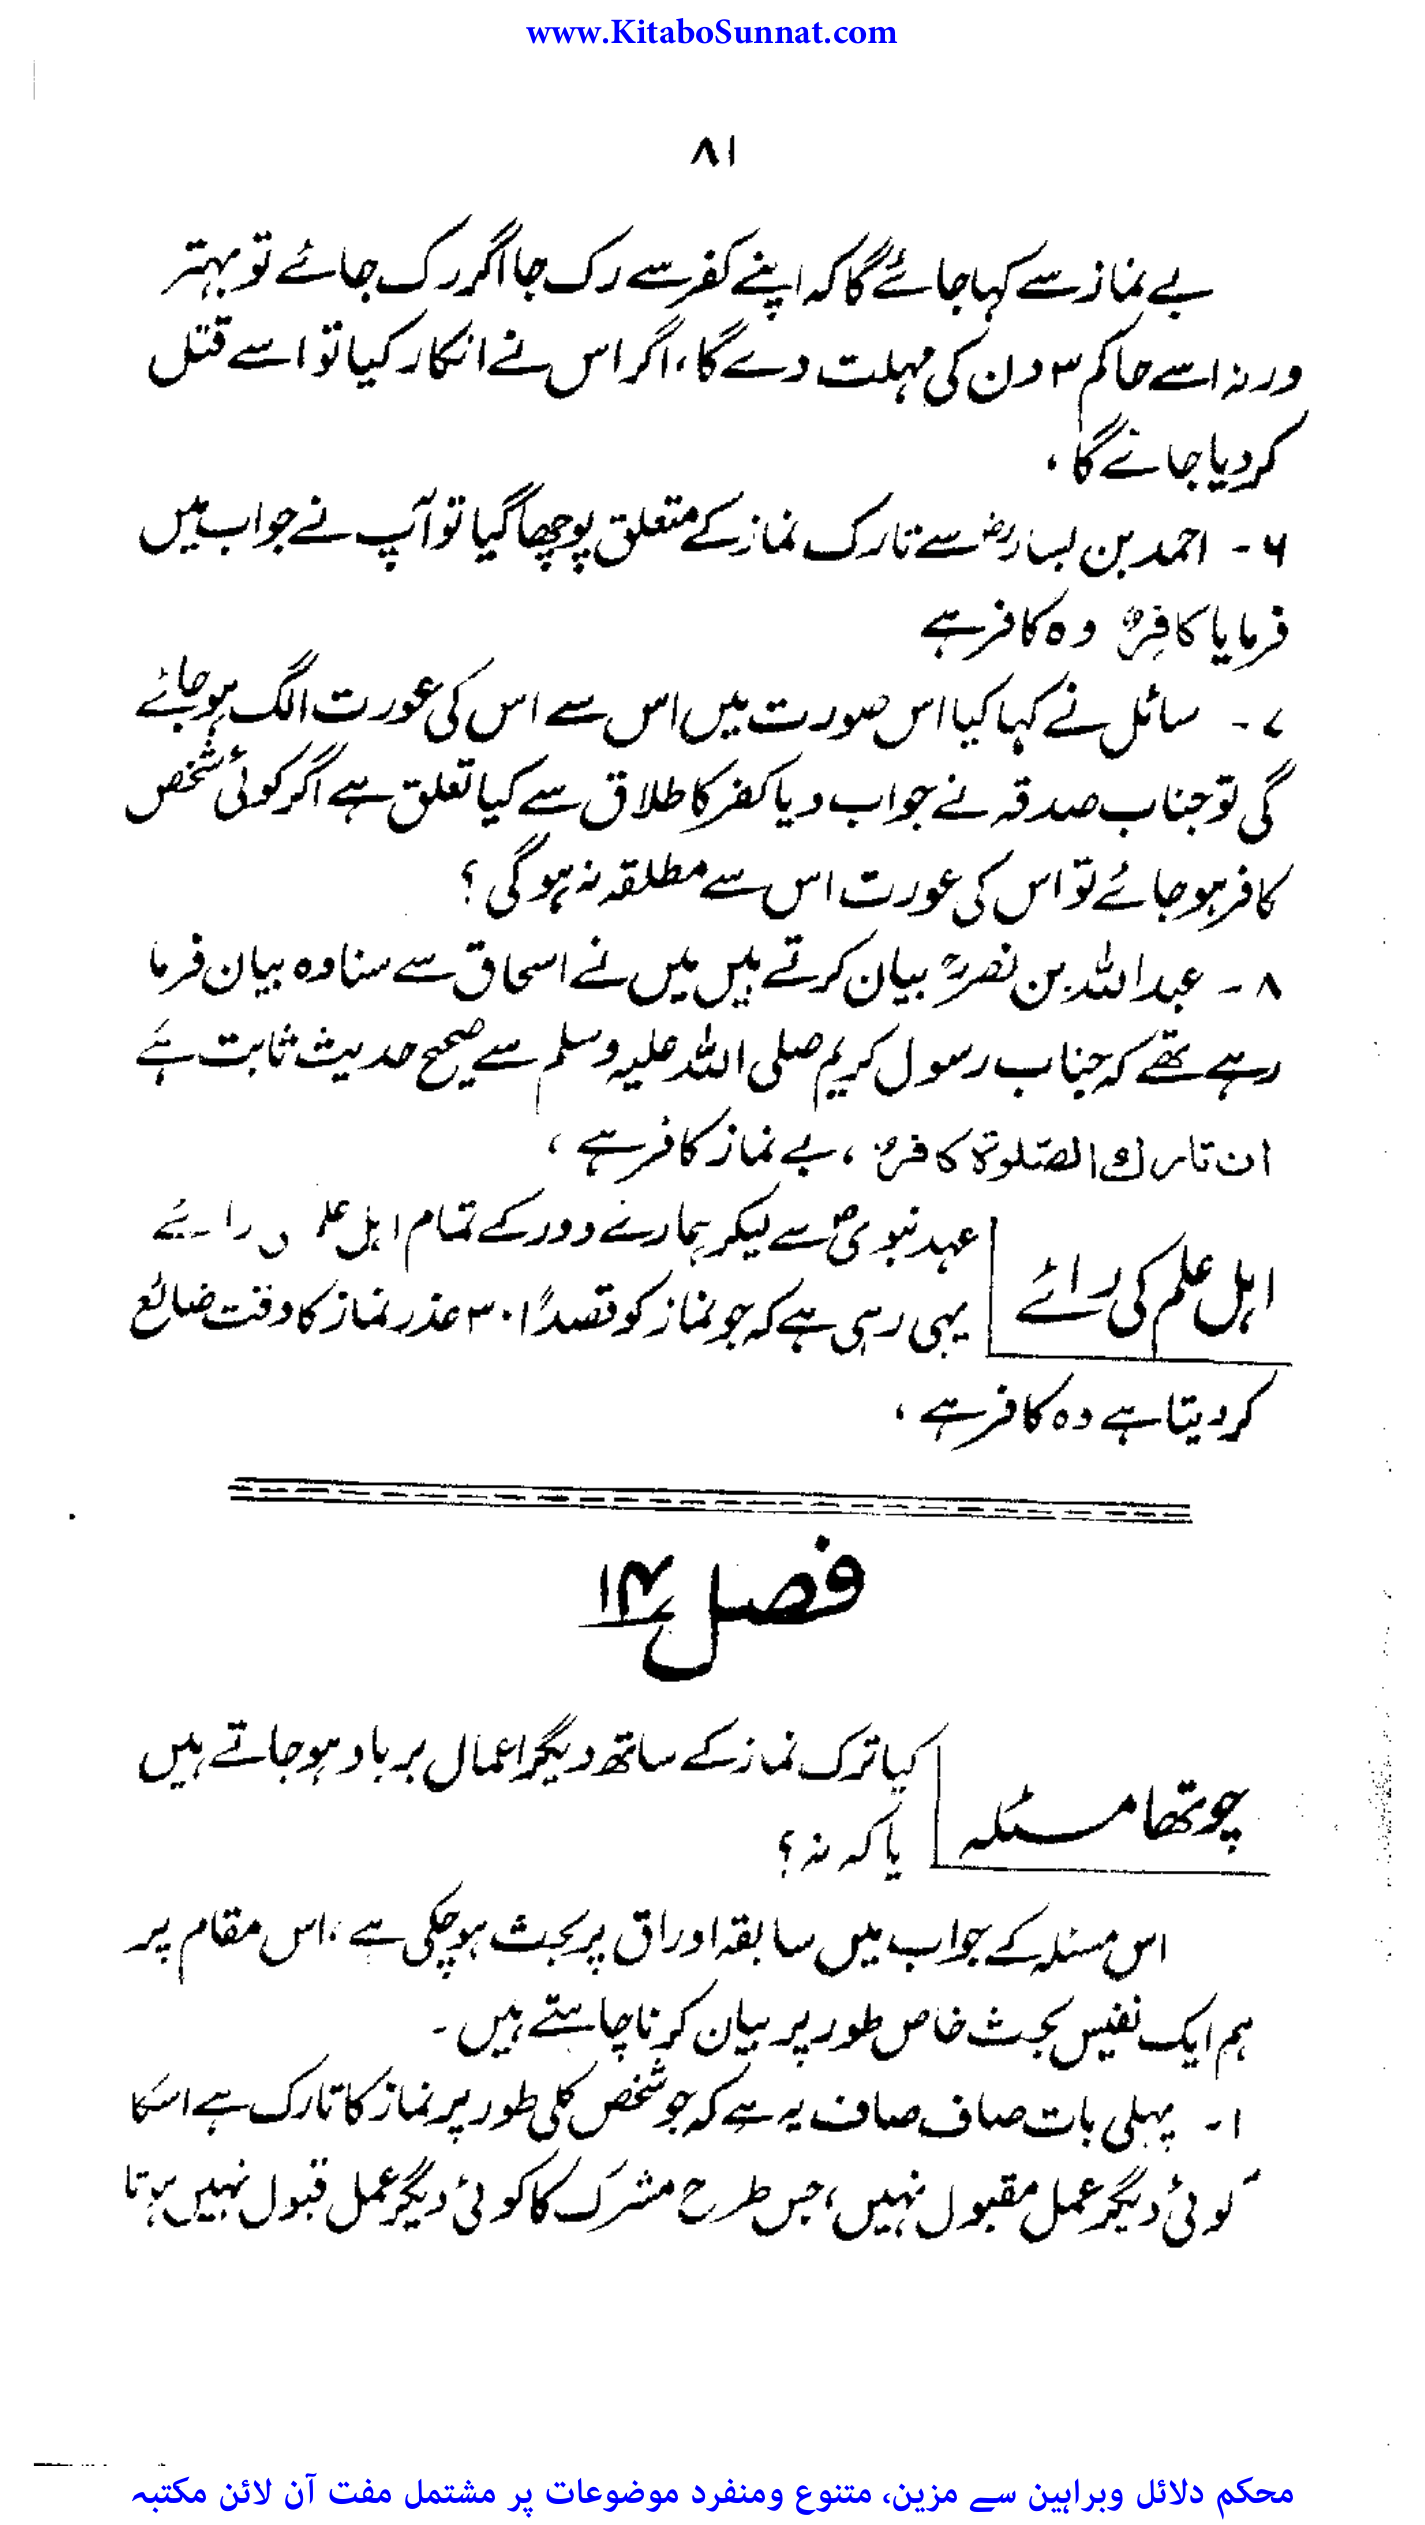 www.KitaboSunnat.com
۸۱
بے نماز سے کہا جائے گا کہ اپنے کفر سے رک جا اگر رک جائے تو بہتر
ورنہ اسے حاکم ۳ دن کی مہلت دے گا، اگر اس نے انکار کیا تو اسے قتل
کر دیا جائے گا،
۶ - احمد بن یسارؓ سے تارک نماز کے متعلق پوچھا گیا تو آپ نے جواب میں
فرمایا کافرٌ وہ کافر ہے
۷ - سائل نے کہا کیا اس صورت میں اس سے اس کی عورت الگ ہو جائے
گی تو جناب صدقہ نے جواب دیا کفر کا طلاق سے کیا تعلق ہے اگر کوئی شخص
کافر ہو جائے تو اس کی عورت اس سے مطلقہ نہ ہو گی ؟
۸ - عبداللہ بن نصرؒ بیان کرتے ہیں میں نے اسحاق سے سنا وہ بیان فرما
رہے تھے کہ جناب رسول کریم صلی اللہ علیہ وسلم سے صحیح حدیث ثابت ہے
ان تارك الصّلوة كافرٌ ، بے نماز کافر ہے ،
اہل علم کی رائے
عہد نبویؐ سے لیکر ہمارے دور کے تمام اہل رائے
یہی رہی ہے کہ جو نماز کو قصداً عذر نماز کا وقت ضائع
کر دیتا ہے وہ کافر ہے ،
فصل ۱۴
چوتھا مسئلہ
کیا ترک نماز کے ساتھ دیگر اعمال برباد ہو جاتے ہیں
یا کہ نہ ؟
اس مسئلہ کے جواب میں سابقہ اوراق پر بحث ہو چکی ہے ، اس مقام پر
ہم ایک نفیس بحث خاص طور پر بیان کرنا چاہتے ہیں ۔
۱ - پہلی بات صاف صاف یہ ہے کہ جو شخص کلی طور پر نماز کا تارک ہے اسکا
کوئی دیگر عمل مقبول نہیں ، جس طرح مشرک کا کوئی دیگر عمل قبول نہیں ہوتا
محکم دلائل وبراہین سے مزین، متنوع ومنفرد موضوعات پر مشتمل مفت آن لائن مکتبہ